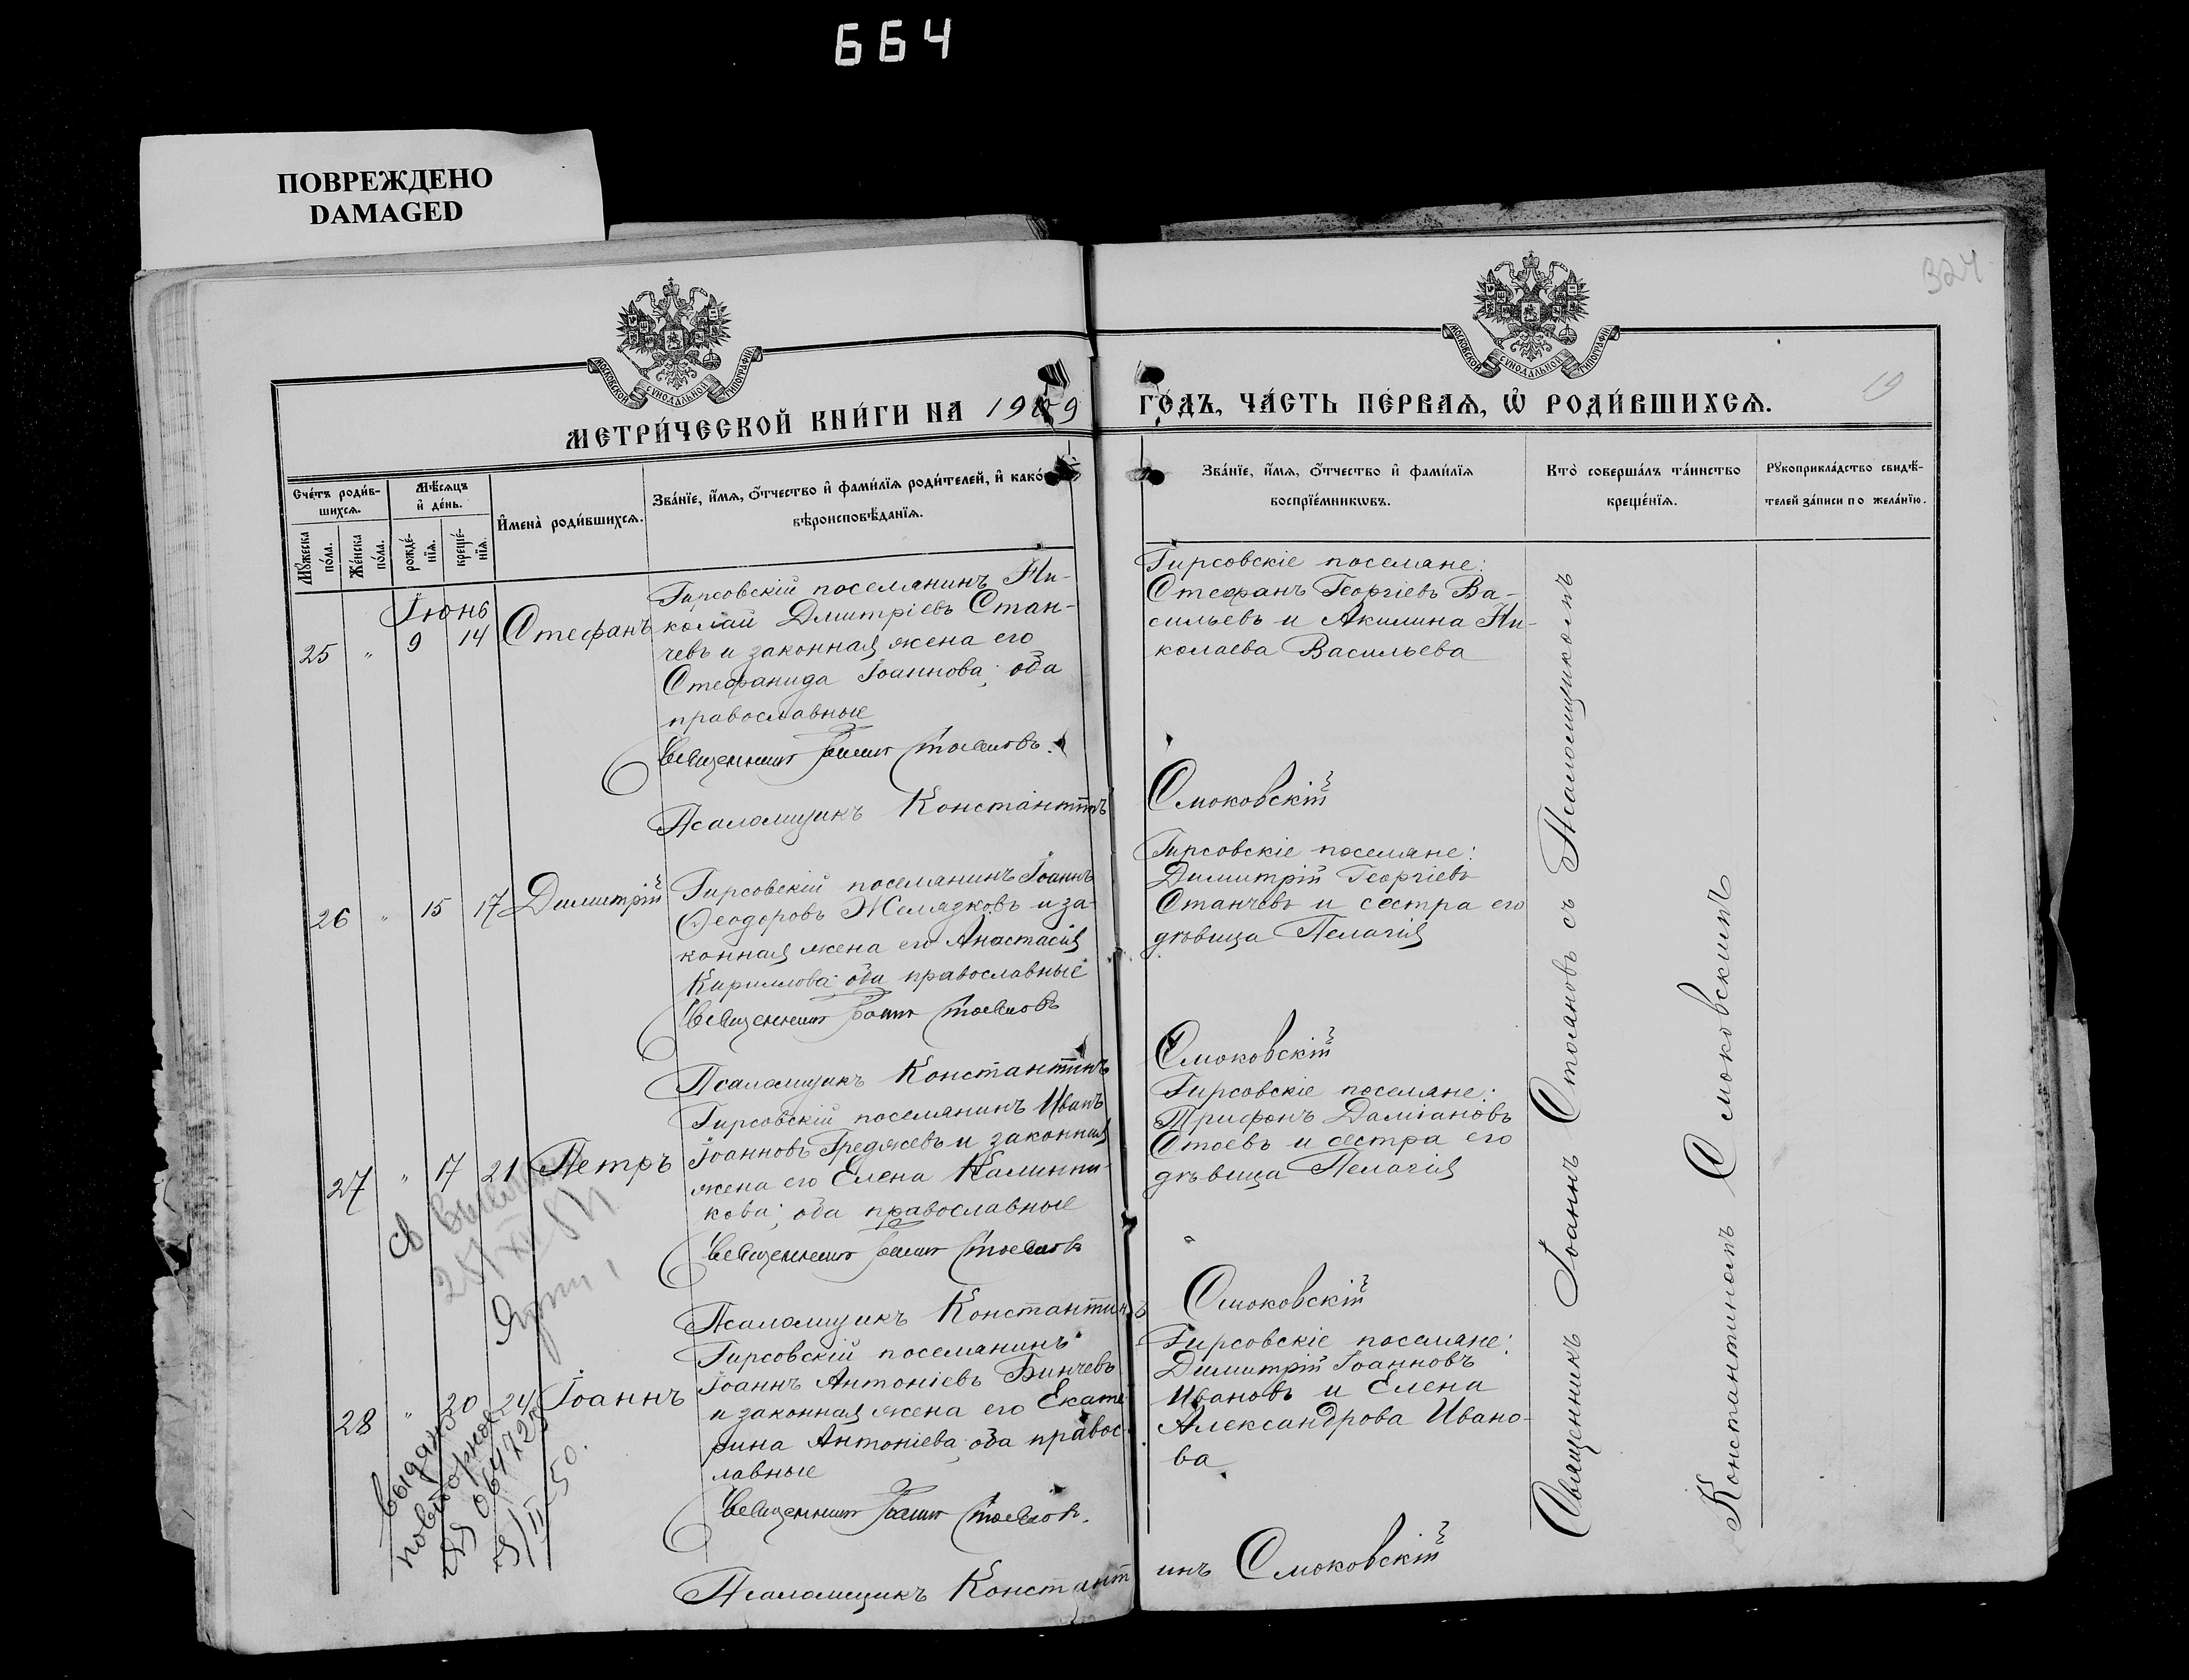 664
ПОВРЕЖДЕНО
DAMAGED
324
19
МОСКОВСКОЙ СѴНОДАЛЬНОЙ ТИПОГРАФІИ
МОСКОВСКОЙ СѴНОДАЛЬНОЙ ТИПОГРАФІИ
МЕТРИ́ЧЕСКОЙ КНИ́ГИ НА 1909
ГО́ДЪ, ЧА́СТЬ ПЕ́РВАѦ, Ѽ РОДИ́ВШИХСѦ.
Сче́тъ роди́в-
шихсѧ.
Мꙋ́жеска
по́ла.
Же́нска
по́ла.
Мѣ́сѧцъ
и҆ де́нь.
рожде́-
нїѧ.
креще́-
нїѧ.
И҆мена̀ роди́вшихсѧ.
Зва́нїе, и҆́мѧ, ѻ҆́тчество и҆ фами́лїѧ роди́телей, и҆ како́
вѣроисповѣ́данїѧ.
Зва́нїе, и҆́мѧ, ѻ҆́тчество и҆ фами́лїѧ
воспрїе́мникѡвъ.
Кто̀ соверша́лъ та́инство
креще́нїѧ.
Рꙋкоприкла́дство свидѣ́-
телей за́писи по жела́нїю.
Іюнь
25 " 9 14 Стефанъ
Гирсовскій поселянинъ Ни-
колай Дмитріевъ Стан-
чевъ и законная жена его
Стефанида Іоаннова; оба
православные
Священникъ Іоаннъ Стояновъ.
Псаломщикъ Константинъ
Гирсовскіе поселяне:
Стефанъ Георгіевъ Ва-
сильевъ и Акилина Ни-
колаева Васильева
Смоковскій
26 " 15 17 Димитрій
Гирсовскій поселянинъ Іоаннъ
Феодоровъ Желязковъ и за-
конная жена его Анастасія
Кириллова; оба православные
Священникъ Іоаннъ Стояновъ
Псаломщикъ Константинъ
Гирсовскіе поселяне:
Димитрій Георгіевъ
Станчевъ и сестра его
дѣвица Пелагія
Смоковскій
27 " 17 21 Петръ
Гирсовскій поселянинъ Иванъ
Іоанновъ Греджевъ и законная
жена его Елена Калинни-
кова; оба православные
Священникъ Іоаннъ Стояновъ
Псаломщикъ Константинъ
Гирсовскіе поселяне:
Трифонъ Даміановъ
Стоевъ и сестра его
дѣвица Пелагія
Смоковскій
28 " 20 24 Іоаннъ
Гирсовскій поселянинъ
Іоаннъ Антоніевъ Бинчевъ
и законная жена его Екате-
рина Антоніева; оба правос-
лавные
Священникъ Іоаннъ Стояновъ.
Псаломщикъ Констант
Гирсовскіе поселяне:
Димитрій Іоанновъ
Ивановъ и Елена
Александрова Ивано-
ва
инъ Смоковскій
выдано
повторное
064725
50.
Священникъ Іоаннъ Стояновъ съ Псаломщикомъ
Константиномъ Смоковскимъ